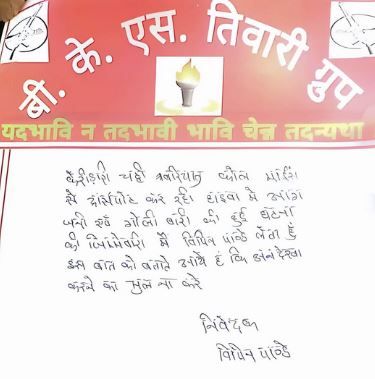 बी. के. एस. तिवारी ग्रुप
यदभावि न तदभावी भावि चेन्न तदन्यथा
केरीडारी चट्टी बरियातु कोल माइंस
से ट्रांसपोर्ट कर रहा हाइवा में आग
जनी एवं गोली बारी की हुई घटना
की जिम्मेवारी मैं विपिन पांडे लेता हुँ
इस बात को बताते आये है कि अनदेखा
करने का भुल ना करे
निवेदक
विपिन पांडे